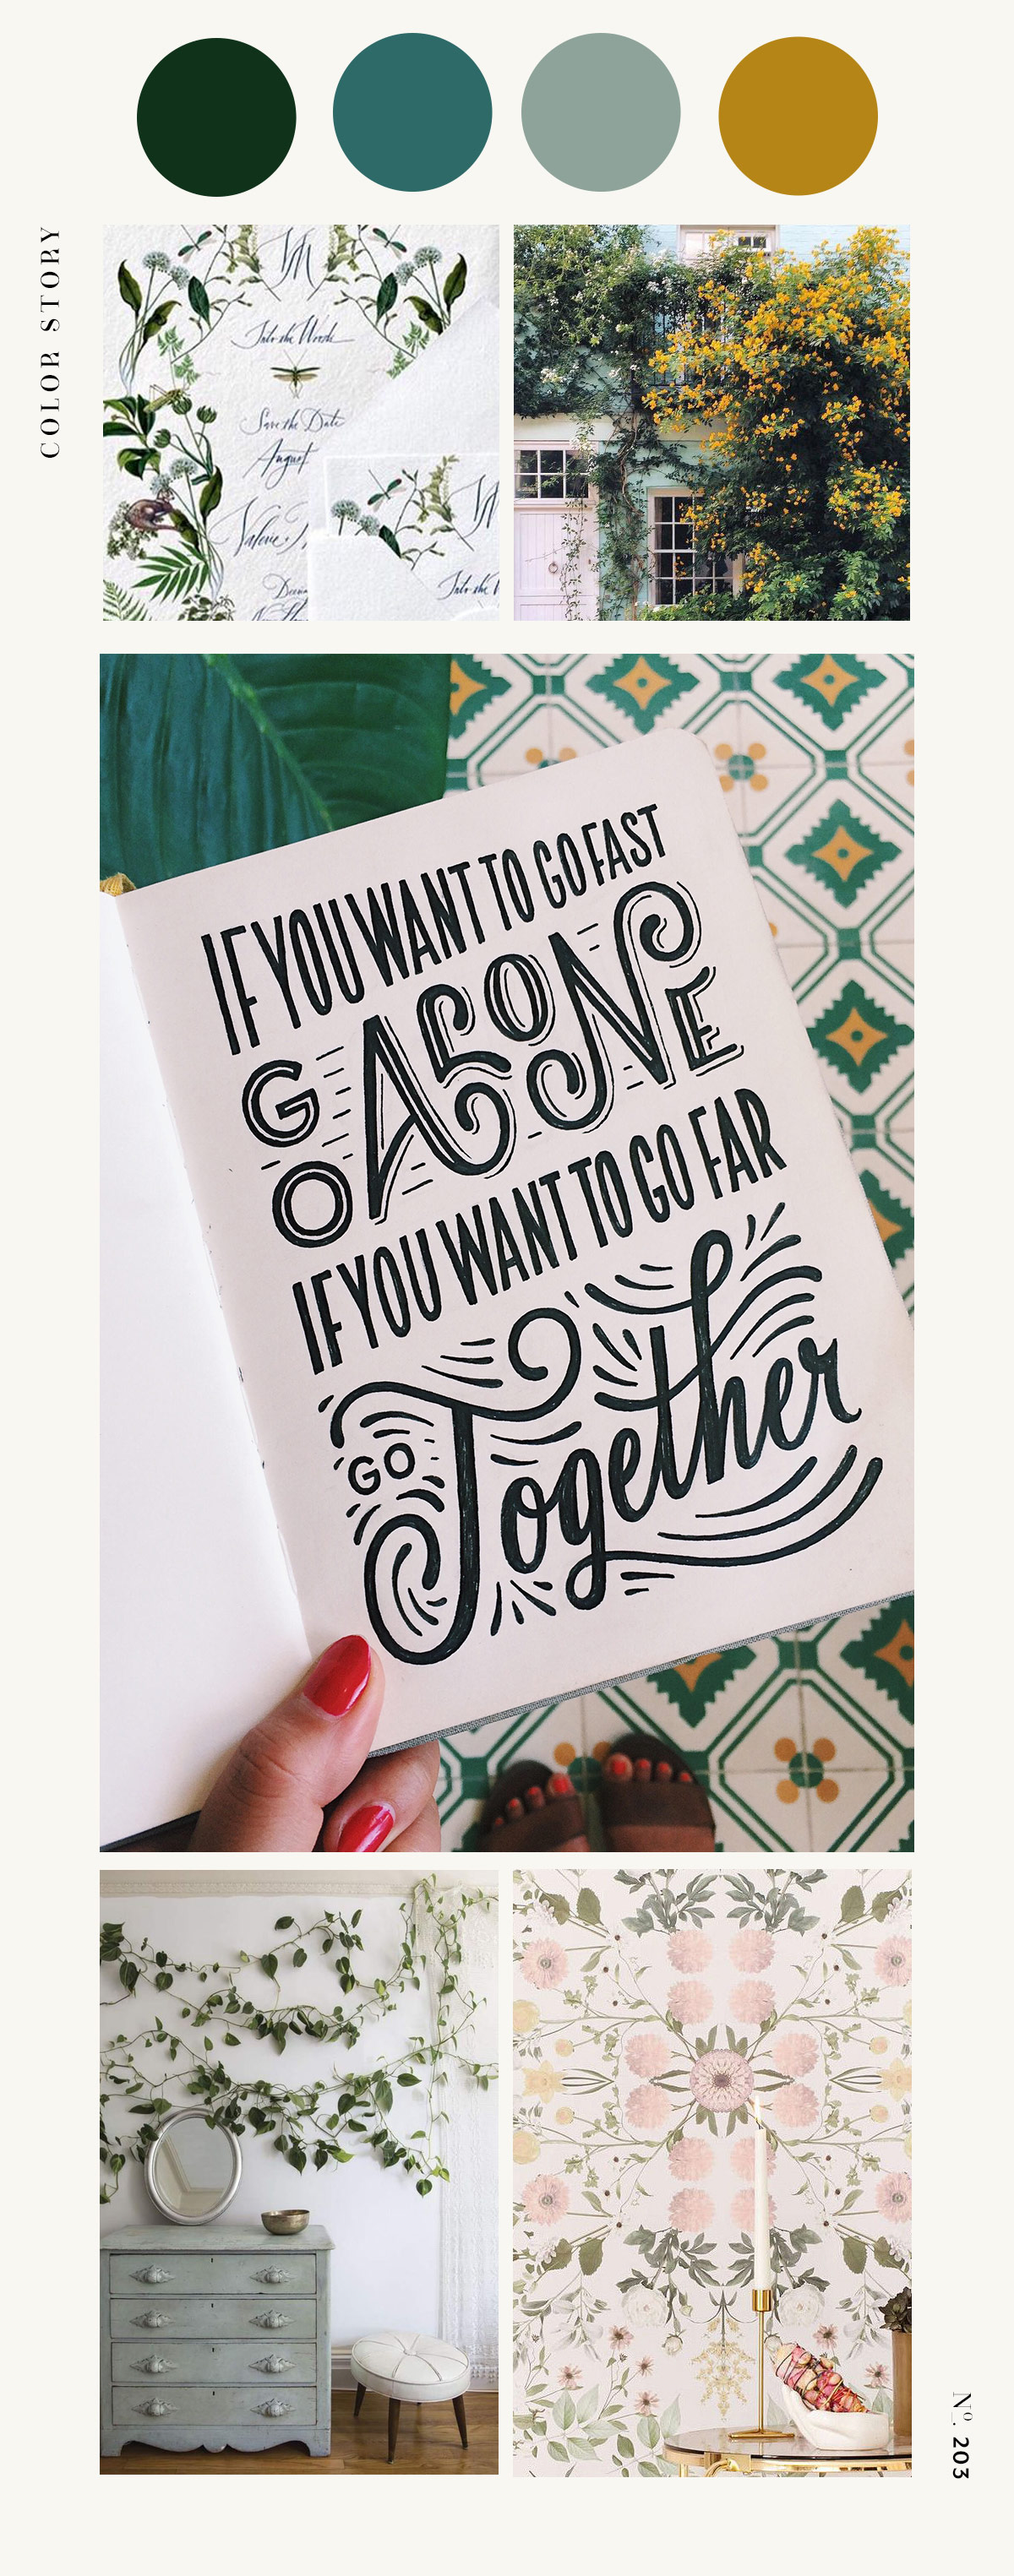 COLOR STORY
VM
Into the Woods
Save the Date
August
Valerie
VM
Into the W
IF YOU WANT TO GO FAST
GO ALONE
IF YOU WANT TO GO FAR
GO Together
Nº. 203